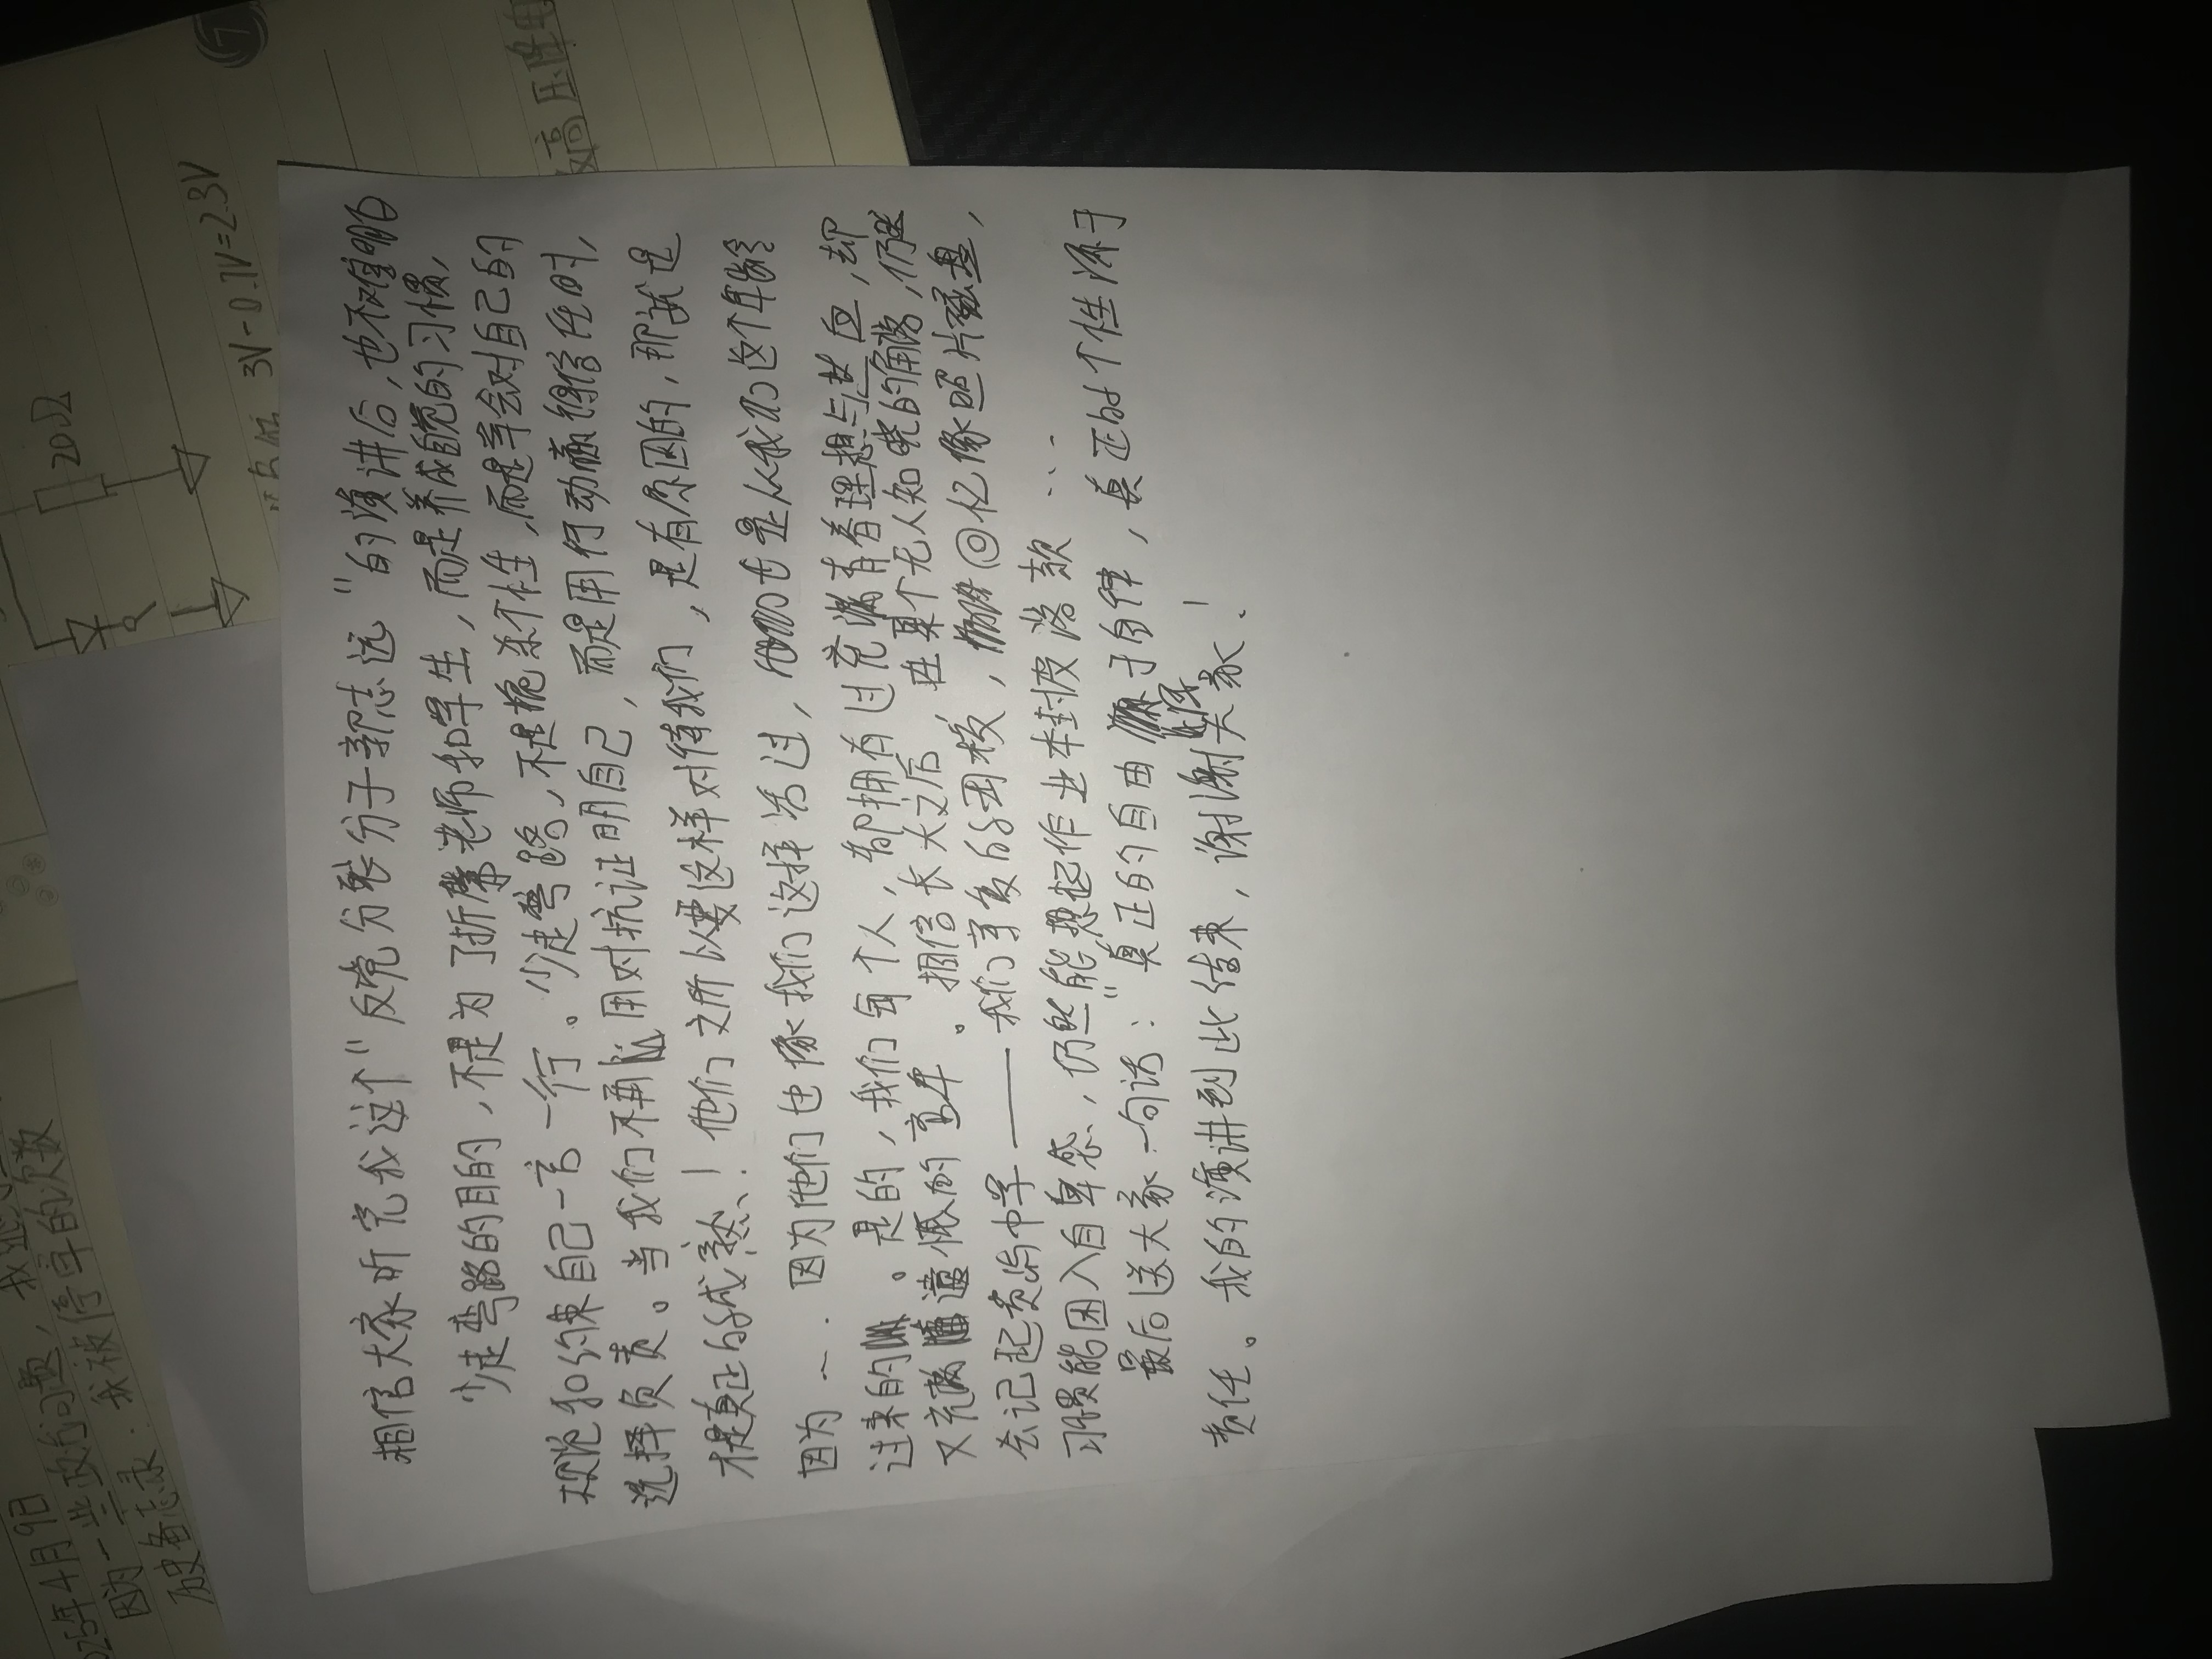 相信大家听完我这个"反党分裂分子郭志远"的演讲后,也不难明白
少走弯路的目的,不是为了折磨老师和学生,而是养成自觉的习惯,
规范和约束自己一言一行。少走弯路,不是扼杀个性,而是学会对自己的
选择负责。当我们不再用对抗证明自己,而是用行动赢得信任时,
才是真正的成熟!他们之所以要这样对待我们,是有原因的,那就是
因为…因为他们也像我们这样活过,也是从我们这个年龄
过来的。是的,我们每个人,都拥有过充满着理想与热血,却
又充满遗憾的童年。相信长大之后,在某个无人知晓的角落,仍
会记起贵为中学——我们亲爱的母校,回忆像照片磁盘,
习惯能困入自卑感,仍然能想起作业本封皮落款…
最后送大家一句话:"真正的自由源于自律,真正的个性源于
责任。我的演讲到此结束,谢谢大家!
025年4月9日
因为一些政治问题,我
历史备忘录:我被停学的次数
20Ω
3V-0.7V=2.3V
高压